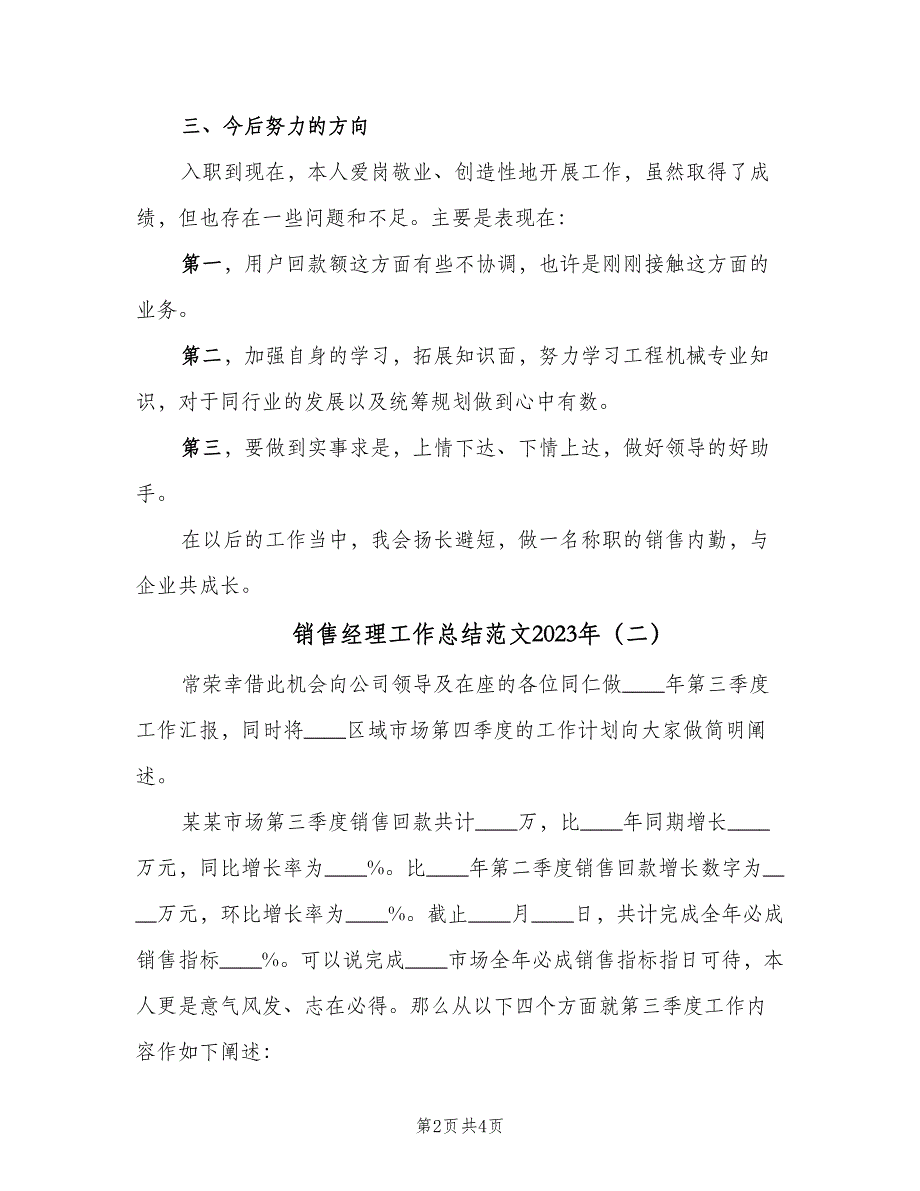 三、今后努力的方向
入职到现在，本人爱岗敬业、创造性地开展工作，虽然取得了成
绩，但也存在一些问题和不足。主要是表现在：
第一，用户回款额这方面有些不协调，也许是刚刚接触这方面的
业务。
第二，加强自身的学习，拓展知识面，努力学习工程机械专业知
识，对于同行业的发展以及统筹规划做到心中有数。
第三，要做到实事求是，上情下达、下情上达，做好领导的好助
手。
在以后的工作当中，我会扬长避短，做一名称职的销售内勤，与
企业共成长。
销售经理工作总结范文2023年（二）
常荣幸借此机会向公司领导及在座的各位同仁做____年第三季度
工作汇报，同时将____区域市场第四季度的工作计划向大家做简明阐
述。
某某市场第三季度销售回款共计____万，比____年同期增长____
万元，同比增长率为____%。比____年第二季度销售回款增长数字为__
__万元，环比增长率为____%。截止____月____日，共计完成全年必成
销售指标____%。可以说完成____市场全年必成销售指标指日可待，本
人更是意气风发、志在必得。那么从以下四个方面就第三季度工作内
容作如下阐述：
第2页共4页